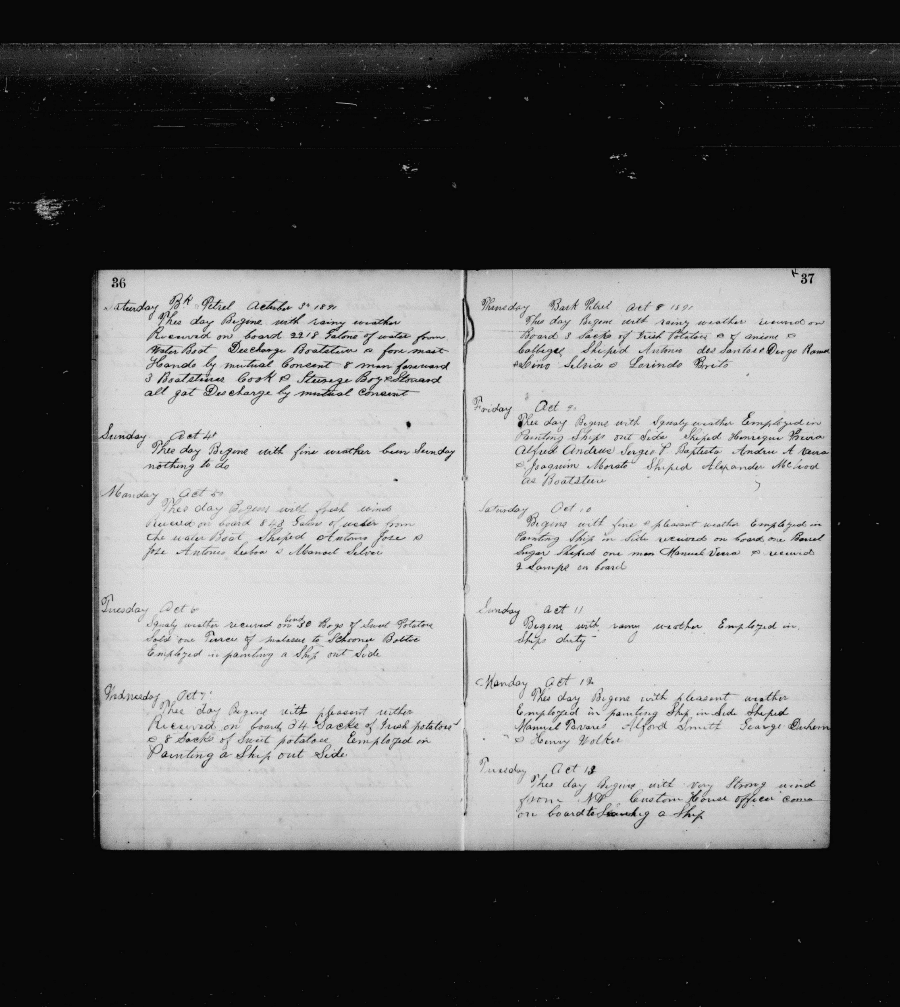 36
Saturday Bk Petrel October 3d 1891
This day Begins with rainy weather
Received on board 2218 Galons of water from
Water Boat Discharge Boatsteer & fore mast
Hands by mutual Consent 8 man foreward
3 Boatsteerers Cook & Steerage Boy & Steward
all got Discharge by mutual consent
Sunday Oct 4
This day Begins with fine weather been Sunday
nothing to do
Monday Oct 5
This day Begins with fresh wind
Recived on board 848 Galons of water from
the water Boat Shiped Antonio Jose &
Jose Antonio Lisboa & Manoel Silver
Tuesday Oct 6
Squaly weather received on board 50 Bags of Sweet Potatoes
Sold one Tierce of molasses to Schooner
Employed in painting a Ship out Side
Wednesday Oct 7
This day Begins with pleasent wether
Received on board 34 Sacks of Irish potatoes
& 8 Sacks of Swit potatoes Eemployed in
Painting a Ship out Side
37
Thursday Bark Petrel Oct 8 1891
This day Begins with rainy weather recieved on
Board 3 Sacks of Irish Potatoes & of onions &
Cabbiges Shiped Antonio dos Santos & Diogo
& Lino Silvia & Lorindo Brito
Friday Oct 9
This day Begins with Squaly weather Employed in
Painting Ship out Side Shiped Henrique
Alfred Andrew Sergio P Baptista Andre A
& Joaquim Shiped Alexander
as Boatsteer
Saturday Oct 10
Begins with fine & pleasant weather Employed in
Painting Ship in Side received on board one Barrel
Sugar Shiped one man Manuel & recived
2 Lamps on board
Sunday Oct 11
Begins with rainy weather Employed in
Ships duty
Monday Oct 12
This day Begins with pleasent weather
Employed in painting Ship in Side Shiped
Manuel Tavares Alford Smitt George
& Henry Wolter
Tuesday Oct 13
This day Begins with very Strong wind
from Custom House officer come
on board to a Ship